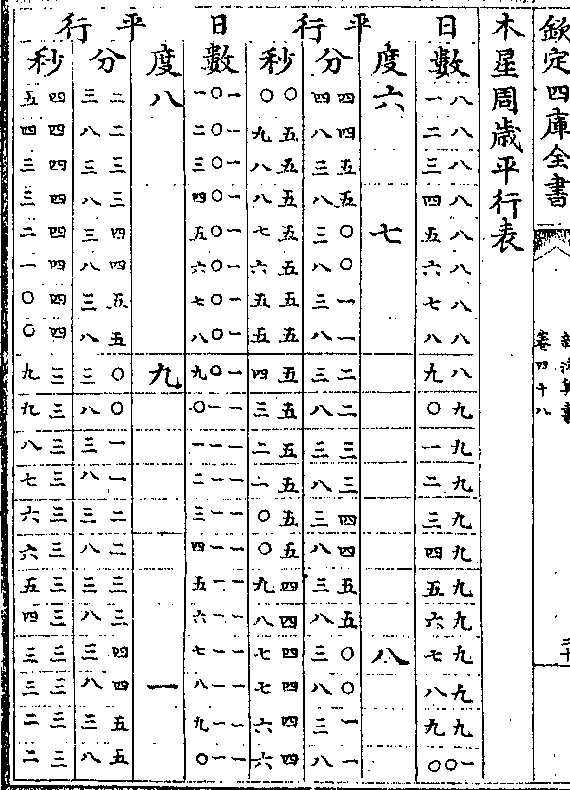 欽定四庫全書
卷四十八
木星周歲平行表
日 平行 日 平行
數 度 分 秒 數 度 分 秒
八一 六 四四 〇〇 一〇一 八 二三 四五
八二 四八 五九 一〇二 二八 四四
八三 五三 五八 一〇三 三三 四三
八四 五八 五八 一〇四 三八 四三
八五 七 〇三 五七 一〇五 四三 四二
八六 〇八 五六 一〇六 四八 四一
八七 一三 五五 一〇七 五三 四〇
八八 一八 五五 一〇八 五八 四〇
八九 二三 五四 一〇九 九 〇三 三九
九〇 二八 五三 一一〇 〇八 三九
九一 三三 五二 一一一 一三 三八
九二 三八 五一 一一二 一八 三七
九三 四三 五〇 一一三 二三 三六
九四 四八 五〇 一一四 二八 三六
九五 五三 四九 一一五 三三 三五
九六 五八 四八 一一六 三八 三四
九七 八 〇三 四七 一一七 四三 三三
九八 〇八 四七 一一八 一 四八 三三
九九 一三 四六 一一九 五三 三二
一〇〇 一八 四六 一一〇 五八 三二